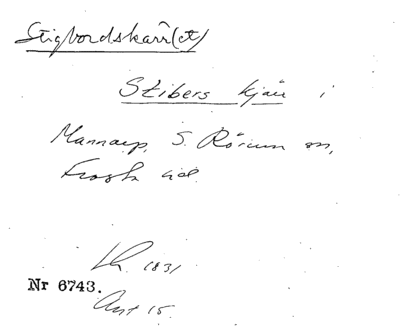 Stigbordskärr(et)
Stibers kjær i
Mannarp, S. Rörum sn,
Frosta hd.
Lh. 1831
Nr 6743.
Akt 15.